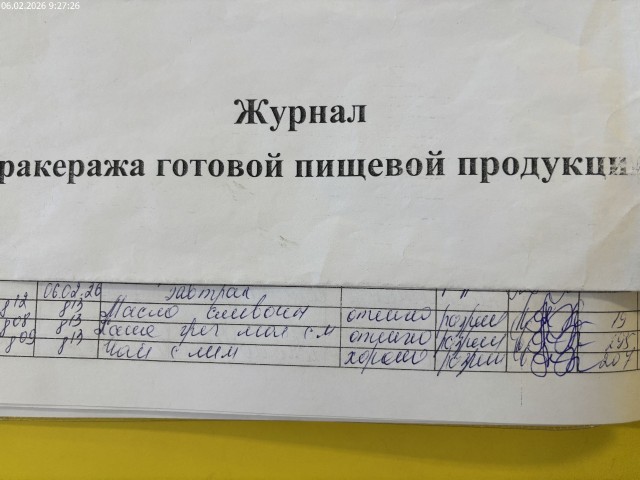 06.02.2026 9:27:26
Журнал
ракеража готовой пищевой продукци
06.02.26 завтрак
8 12 8 13 Масло сливочн отлично разреш 15
8 08 8 13 Каша греч мол с м отлично разреш
8 09 8 13 Чай с лим хорошо разреш 207